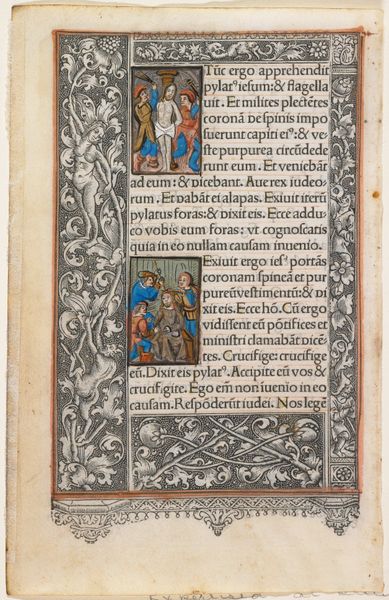 Tūc ergo apprehendit
pylatꝰ iesum: & flagella
uit. Et milites plectētes
coronā De spinis impo
suerunt capiti eiꝰ: & ve-
ste purpurea circūdede
runt eum. Et veniebāt
ad eum: & Dicebant. Aue rex iudeo-
rum. Et Dabāt ei alapas. Exiuit iterū
pylatus foras: & Dixit eis. Ecce addu-
co vobis eum foras: vt cognoscatis
quia in eo nullam causam inuenio.
Exiuit ergo iesꝰ portās
coronam spineā et pur
pureū vestimentū: & Di
xit eis. Ecce hō. Cū ergo
vidissent eū pōtifices et
ministri clamabāt Dicē
tes. Crucifige: crucifige
eū. Dixit eis pylatꝰ. Accipite eū vos &
crucifigite. Ego em̄ non inuenio in eo
causam. Respōderūt iudei. Nos legē